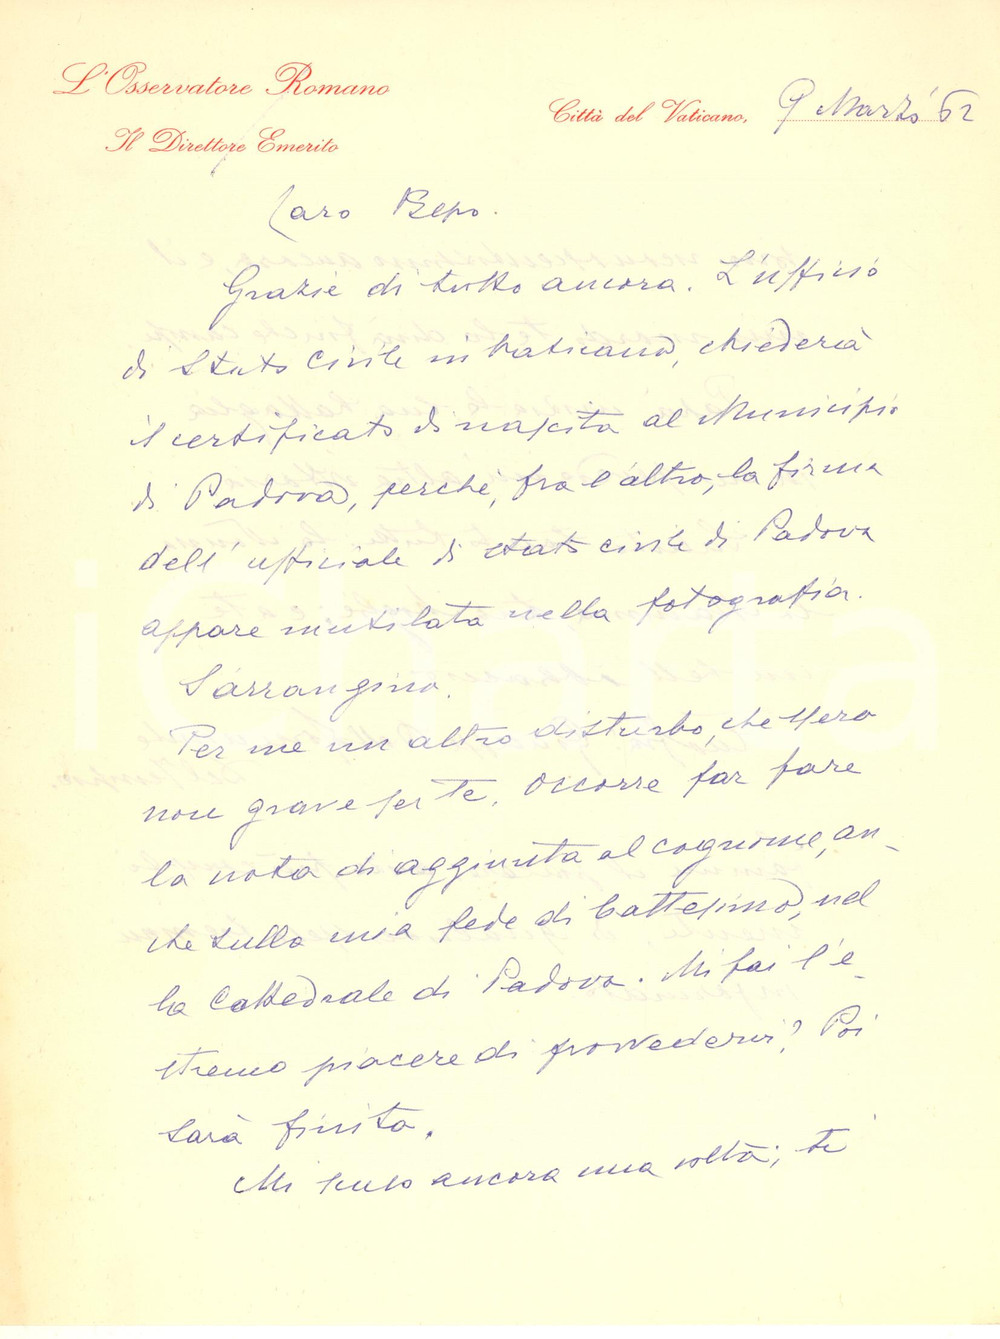 L'Osservatore Romano
Il Direttore Emerito
Città del Vaticano, 9 Marzo '62
Caro Bepo.
Grazie di tutto ancora. L'ufficio
di Stato Civile in Vaticano, chiederà
il certificato di nascita al Municipio
di Padova, perché, fra l'altro, la firma
dell'ufficiale di stato civile di Padova
appare mutilata nella fotografia.
Per me un altro disturbo, che spero
non grave per te. Occorre far fare
la nota di aggiunta al cognome, an-
che sulla mia fede di battesimo, nel
la Cattedrale di Padova. Mi fai l'e-
stremo piacere di provvedervi? Poi
sarà finita.
Mi scuso ancora una volta; ti
iCharta